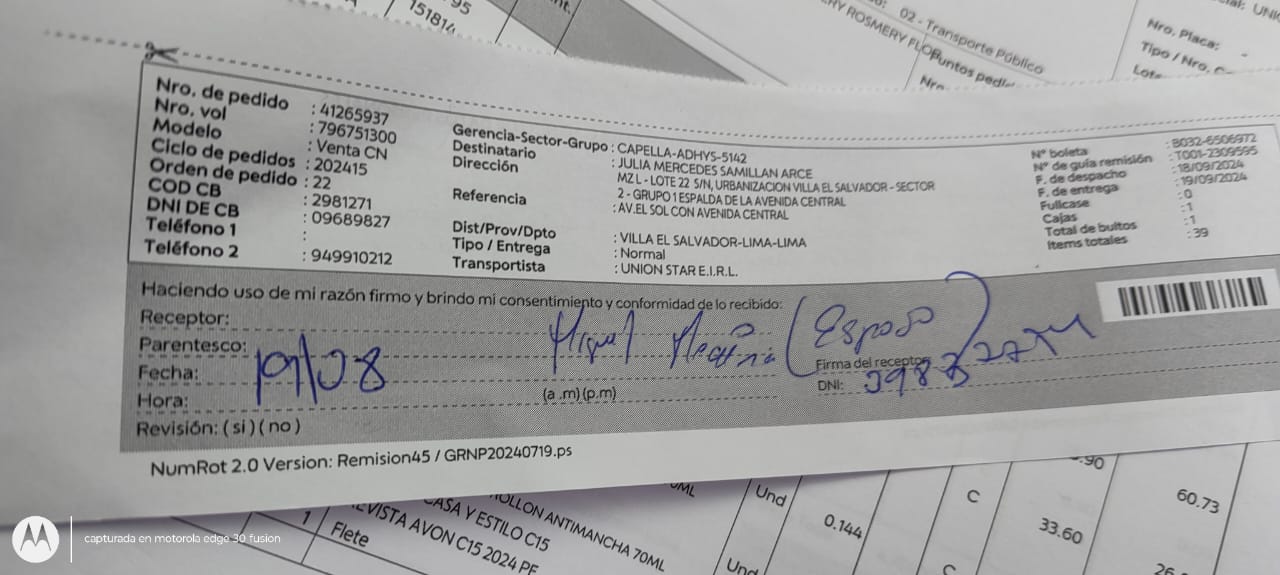 95
151814
nt.
RY ROSMERY FLOR
02 - Transporte Público
Puntos pedi
Nro.
Nro. Placa: -
Tipo / Nro. C
Nro. de pedido : 41265937
Nro. vol : 796751300
Modelo : Venta CN
Ciclo de pedidos : 202415
Orden de pedido : 22
COD CB : 2981271
DNI DE CB : 09689827
Teléfono 1 :
Teléfono 2 : 949910212
Gerencia-Sector-Grupo : CAPELLA-ADHYS-5142
Destinatario : JULIA MERCEDES SAMILLAN ARCE
Dirección MZ L - LOTE 22 S/N, URBANIZACION VILLA EL SALVADOR - SECTOR
2 - GRUPO 1 ESPALDA DE LA AVENIDA CENTRAL
Referencia : AV.EL SOL CON AVENIDA CENTRAL
Dist/Prov/Dpto : VILLA EL SALVADOR-LIMA-LIMA
Tipo / Entrega : Normal
Transportista : UNION STAR E.I.R.L.
N° boleta : B032-6506972
N° de guía remisión : T001-2309595
F. de despacho : 18/09/2024
F. de entrega : 19/09/2024
Fullcase : 0
Cajas : 1
Total de bultos : 1
Items totales : 39
Haciendo uso de mi razón firmo y brindo mi consentimiento y conformidad de lo recibido:
Receptor: Miguel (Esposo)
Parentesco:
Firma del receptor
Fecha: 19/08
DNI:
Hora: (a .m) (p.m)
Revisión: ( si ) ( no )
NumRot 2.0 Version: Remision45 / GRNP20240719.ps
ROLLON ANTIMANCHA 70ML
CASA Y ESTILO C15
1 REVISTA AVON C15 2024 PE
Flete
Und
0.144
C
33.60
60.73
.90
Und
C
26
motorola edge 30 fusion
capturada en motorola edge 30 fusion